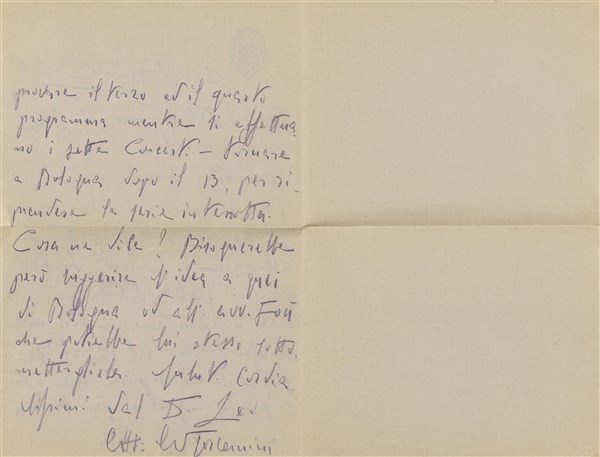 provare il terzo ed il quarto
programma mentre si effettua
no i sette Concert. – Tornare
a Bologna dopo il 13, per ri-
prendere la serie interrotta.
Cosa ne dite? Bisognerebbe
però suggerire l'idea a quei
di Bologna od all' avv.
che potrebbe lui stesso sotto
metterglielo. Salut. cordia
lissimi dal
A Toscanini